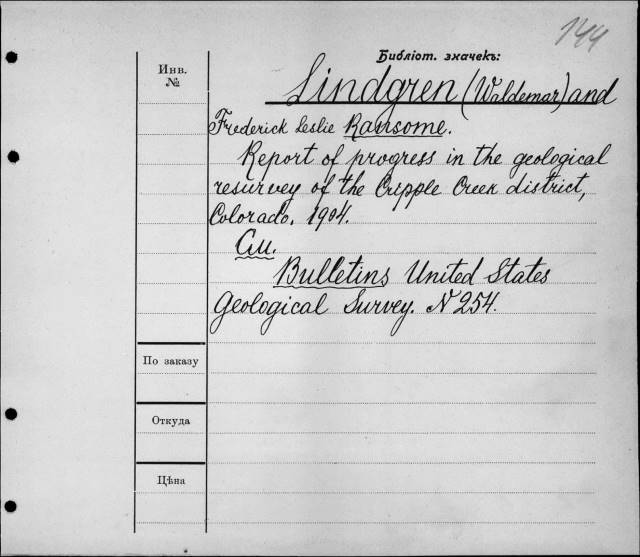 144
Библіот. значекъ:
Инв.
№
Lindgren (Waldemar) and
Frederick Leslie Ransome.
Report of progress in the geological
resurvey of the Cripple Creek district,
Colorado. 1904.
См.
Bulletins United States
Geological Survey. N 254.
По заказу
Откуда
Цѣна